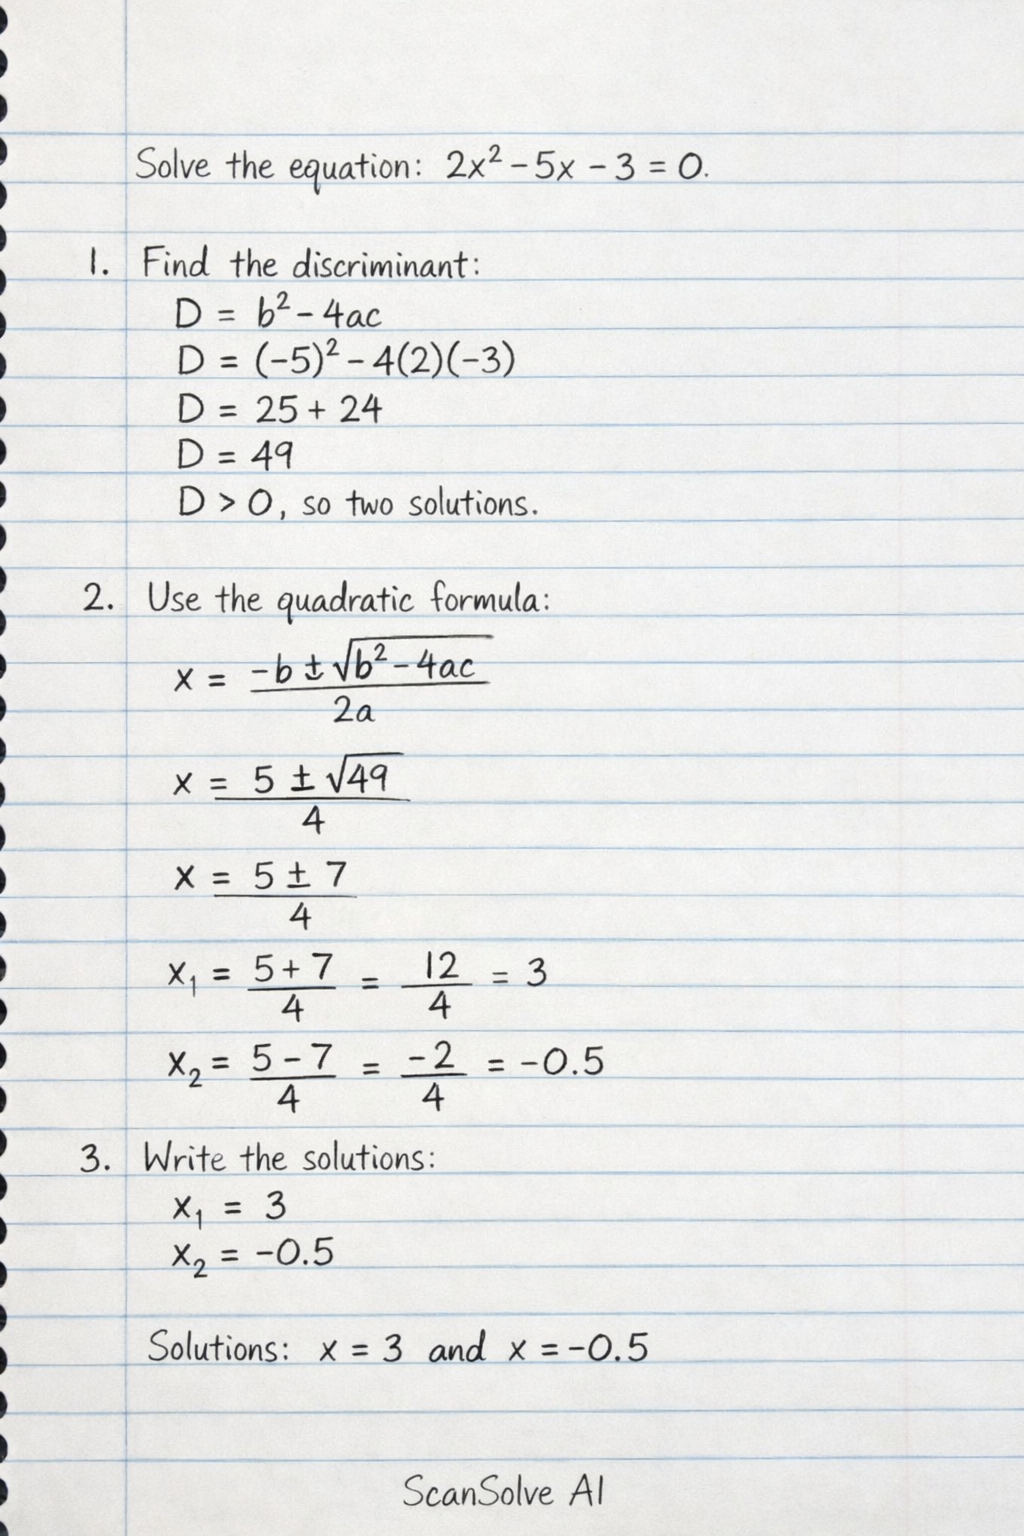 Solve the equation: 2x² – 5x – 3 = 0.
1. Find the discriminant:
D = b² – 4ac
D = (–5)² – 4(2)(–3)
D = 25 + 24
D = 49
D > 0, so two solutions.
2. Use the quadratic formula:
x = (–b ± √(b² – 4ac)) / 2a
x = (5 ± √49) / 4
x = (5 ± 7) / 4
x₁ = (5 + 7) / 4 = 12 / 4 = 3
x₂ = (5 – 7) / 4 = –2 / 4 = –0.5
3. Write the solutions:
x₁ = 3
x₂ = –0.5
Solutions: x = 3 and x = –0.5
ScanSolve AI